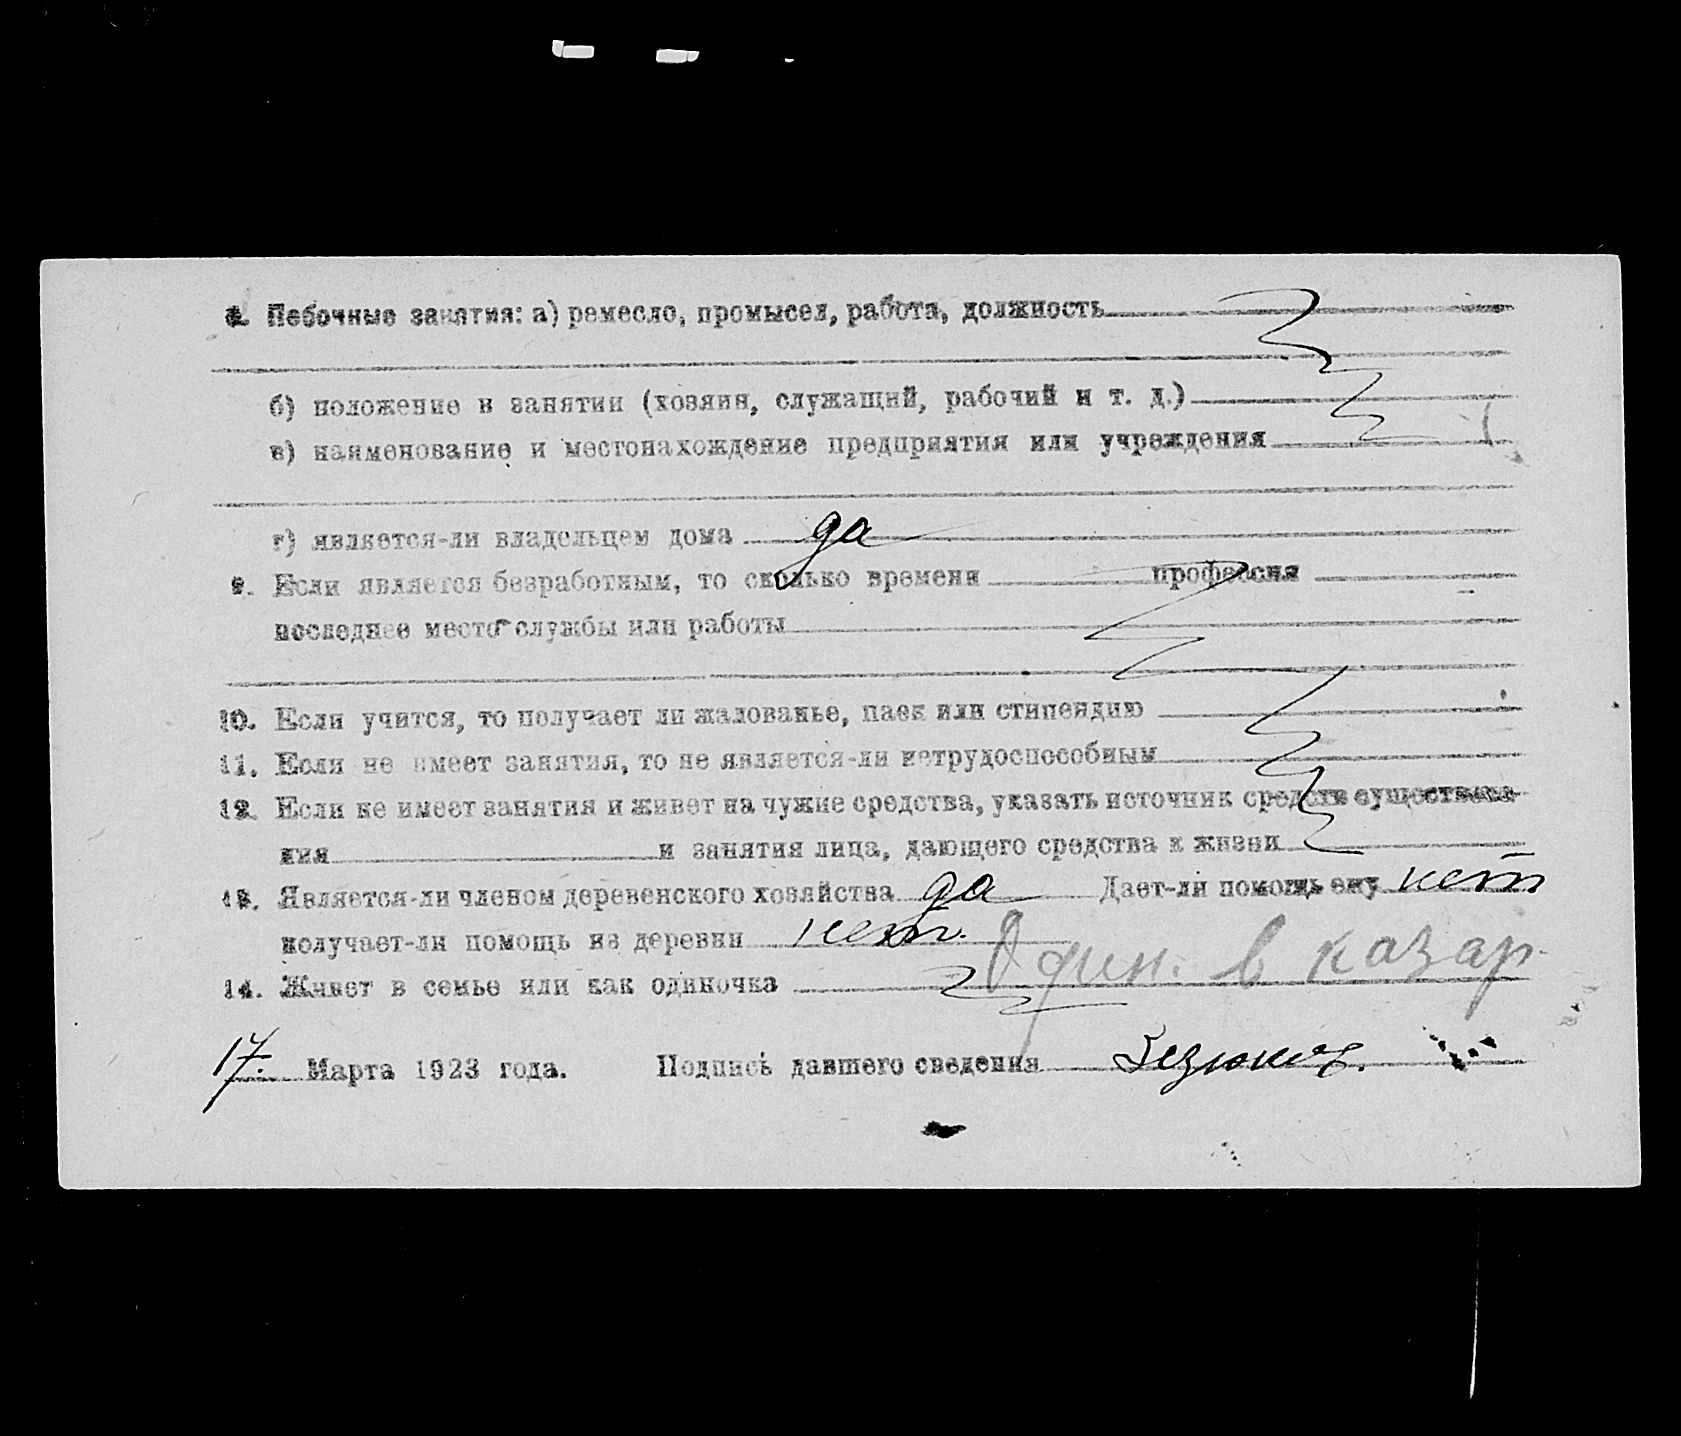 8. Побочные занятия: а) ремесло, промысел, работа, должность
б) положение в занятии (хозяин, служащий, рабочий и т. д.)
в) наименование и местонахождение предприятия или учреждения
г) является-ли владельцем дома да
9. Если является безработным, то сколько времени профессия
последнее место службы или работы
10. Если учится, то получает ли жалованье, паек или стипендию
11. Если не имеет занятия, то не является-ли нетрудоспособным
12. Если не имеет занятия и живет на чужие средства, указать источник средств существова-
ния и занятия лица, дающего средства к жизни
13. Является-ли членом деревенского хозяйства да Дает-ли помощь ему нет
получает-ли помощь из деревни нет.
14. Живет в семье или как одиночка Один. в казар.
17. Марта 1923 года. Подпись давшего сведения